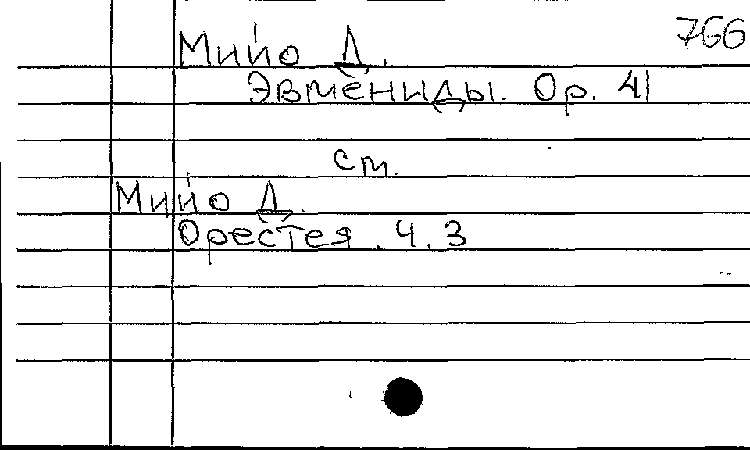 766
Мийо Д.
Эвмениды. Op. 41
см.
Мийо Д.
Орестея. Ч. 3